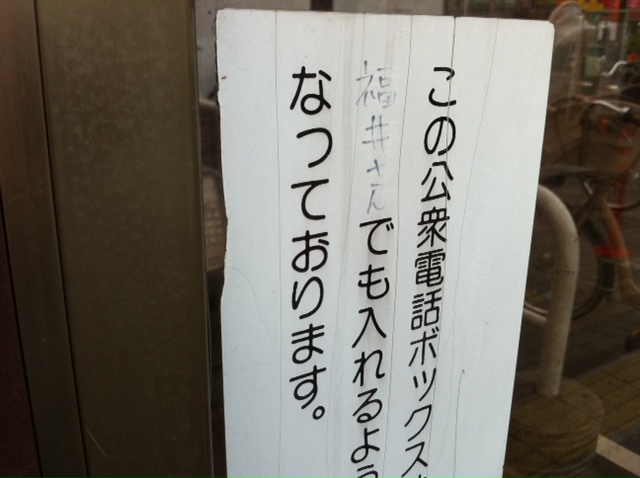 この公衆電話ボックス
福井さんでも入れるよう
なっております。